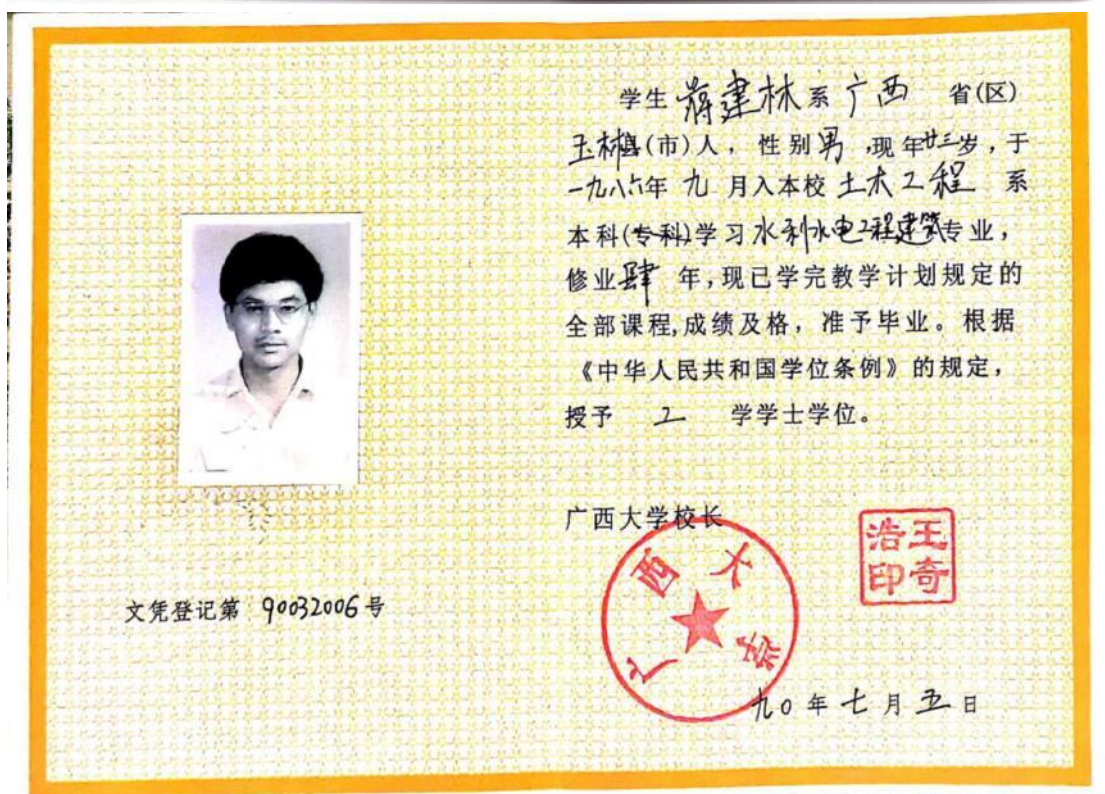 学生 蒋建林 系 广西 省(区)
玉林县(市)人，性别男，现年廿三岁，于
一九八六年 九 月入本校 土木工程 系
本科(专科)学习水利水电工程建筑专业，
修业肆 年，现已学完教学计划规定的
全部课程,成绩及格，准予毕业。根据
《中华人民共和国学位条例》的规定，
授予 工 学学士学位。
广西大学校长
王奇浩印
广西大学
文凭登记第 90032006号
九〇年七月五日